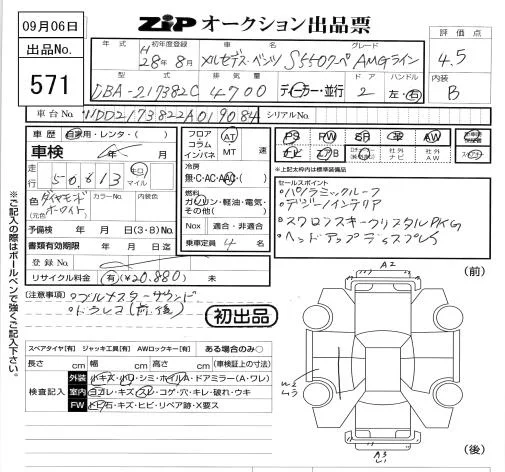 09月06日
ZiP オークション出品票
出品No.
571
年式
初年度登録
H 28年8月
車名
メルセデス・ベンツ S550クーペ
グレード
AMGライン
評価点
4.5
型式
DBA-217382C
排気量
4700
ディーラー・並行
ドア
2
ハンドル
左・右
内装
B
車台No.
WDD2173822A019084
シリアルNo.
車歴
自家用・レンタ・( )
車検 年 月
走行
50,613
キロ
マイル
色 ダイヤモンドホワイト
(元色)
カラーNo.
内装色
予備検 年 月 日(3・8)No.
書類有効期限 年 月 日迄
登録No.
リサイクル料金 有(¥20,880) 未
フロア
コラム
インパネ
AT
MT
速
冷房
無・C・AC・AAC・( )
燃料
ガソリン・軽油・電気・
その他( )
Nox 適合・非適合
乗車定員 4 名
PS PW SR 革 AW
ナビ TV AB
社外ナビ
社外AW
*上記太枠内は標準装備品
セールスポイント
・パノラミックルーフ
・デジーノインテリア
・スワロフスキークリスタルPKG
・ヘッドアップディスプレイ
[注意事項] ・ブルメスターサウンド
・ドラレコ(前後)
初出品
スペアタイヤ[有] ジャッキ工具[有] AWロックキー[有] ある場合のみ○
長さ cm 幅 cm 高さ cm (車検証上の寸法)
検査記入
外装 小キズ・小ワ・シミ・ホイルA・ドアミラー(A・ワレ)
室内 ヨゴレ・キズ・スレ・コゲ穴・キレ・破れ・ウキ
FW 飛石・キズ・ヒビ・リペア跡・X要ス
※ご記入の際はボールペンで強くご記入下さい。
(前)
A2
(後)